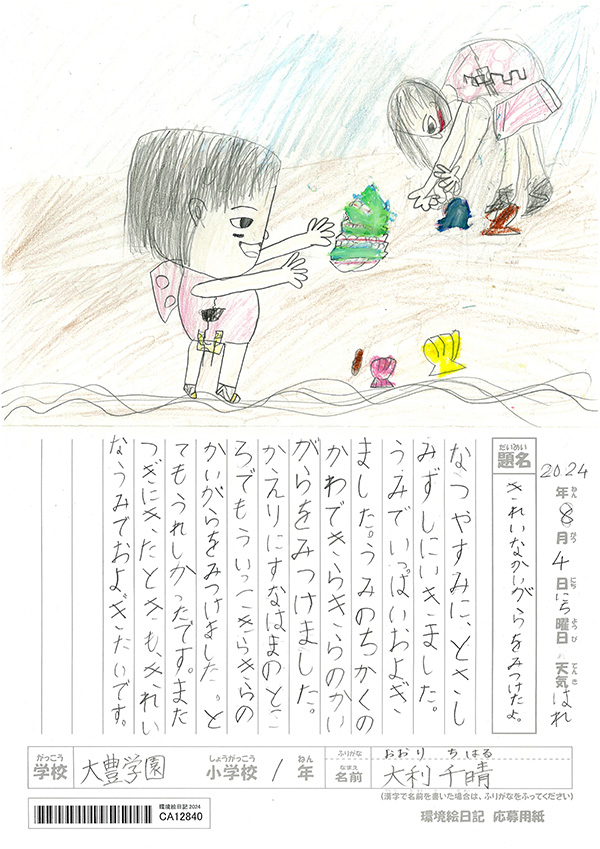 2024年8月4日にち曜日 天気はれ
ねん がつ にち ようび てんき
だいめい
題名
きれいなかいがらをみつけたよ。
なつやすみに、とさし
みずしにいきました。
うみでいっぱいおよぎ
ました。うみのちかくの
かわできらきらのかい
がらをみつけました。
かえりにすなはまのとこ
ろでもういっこきらきらの
かいがらをみつけました。と
てもうれしかったです。また
つぎにきたときも、きれい
なうみでおよぎたいです。
がっこう
学校
大豊学園
しょうがっこう
小学校
1
ねん
年
ふりがな
おおり ちはる
なまえ
名前
大利 千晴
(漢字で名前を書いた場合は、ふりがなをふってください)
環境絵日記 2024
CA12840
環境絵日記 応募用紙